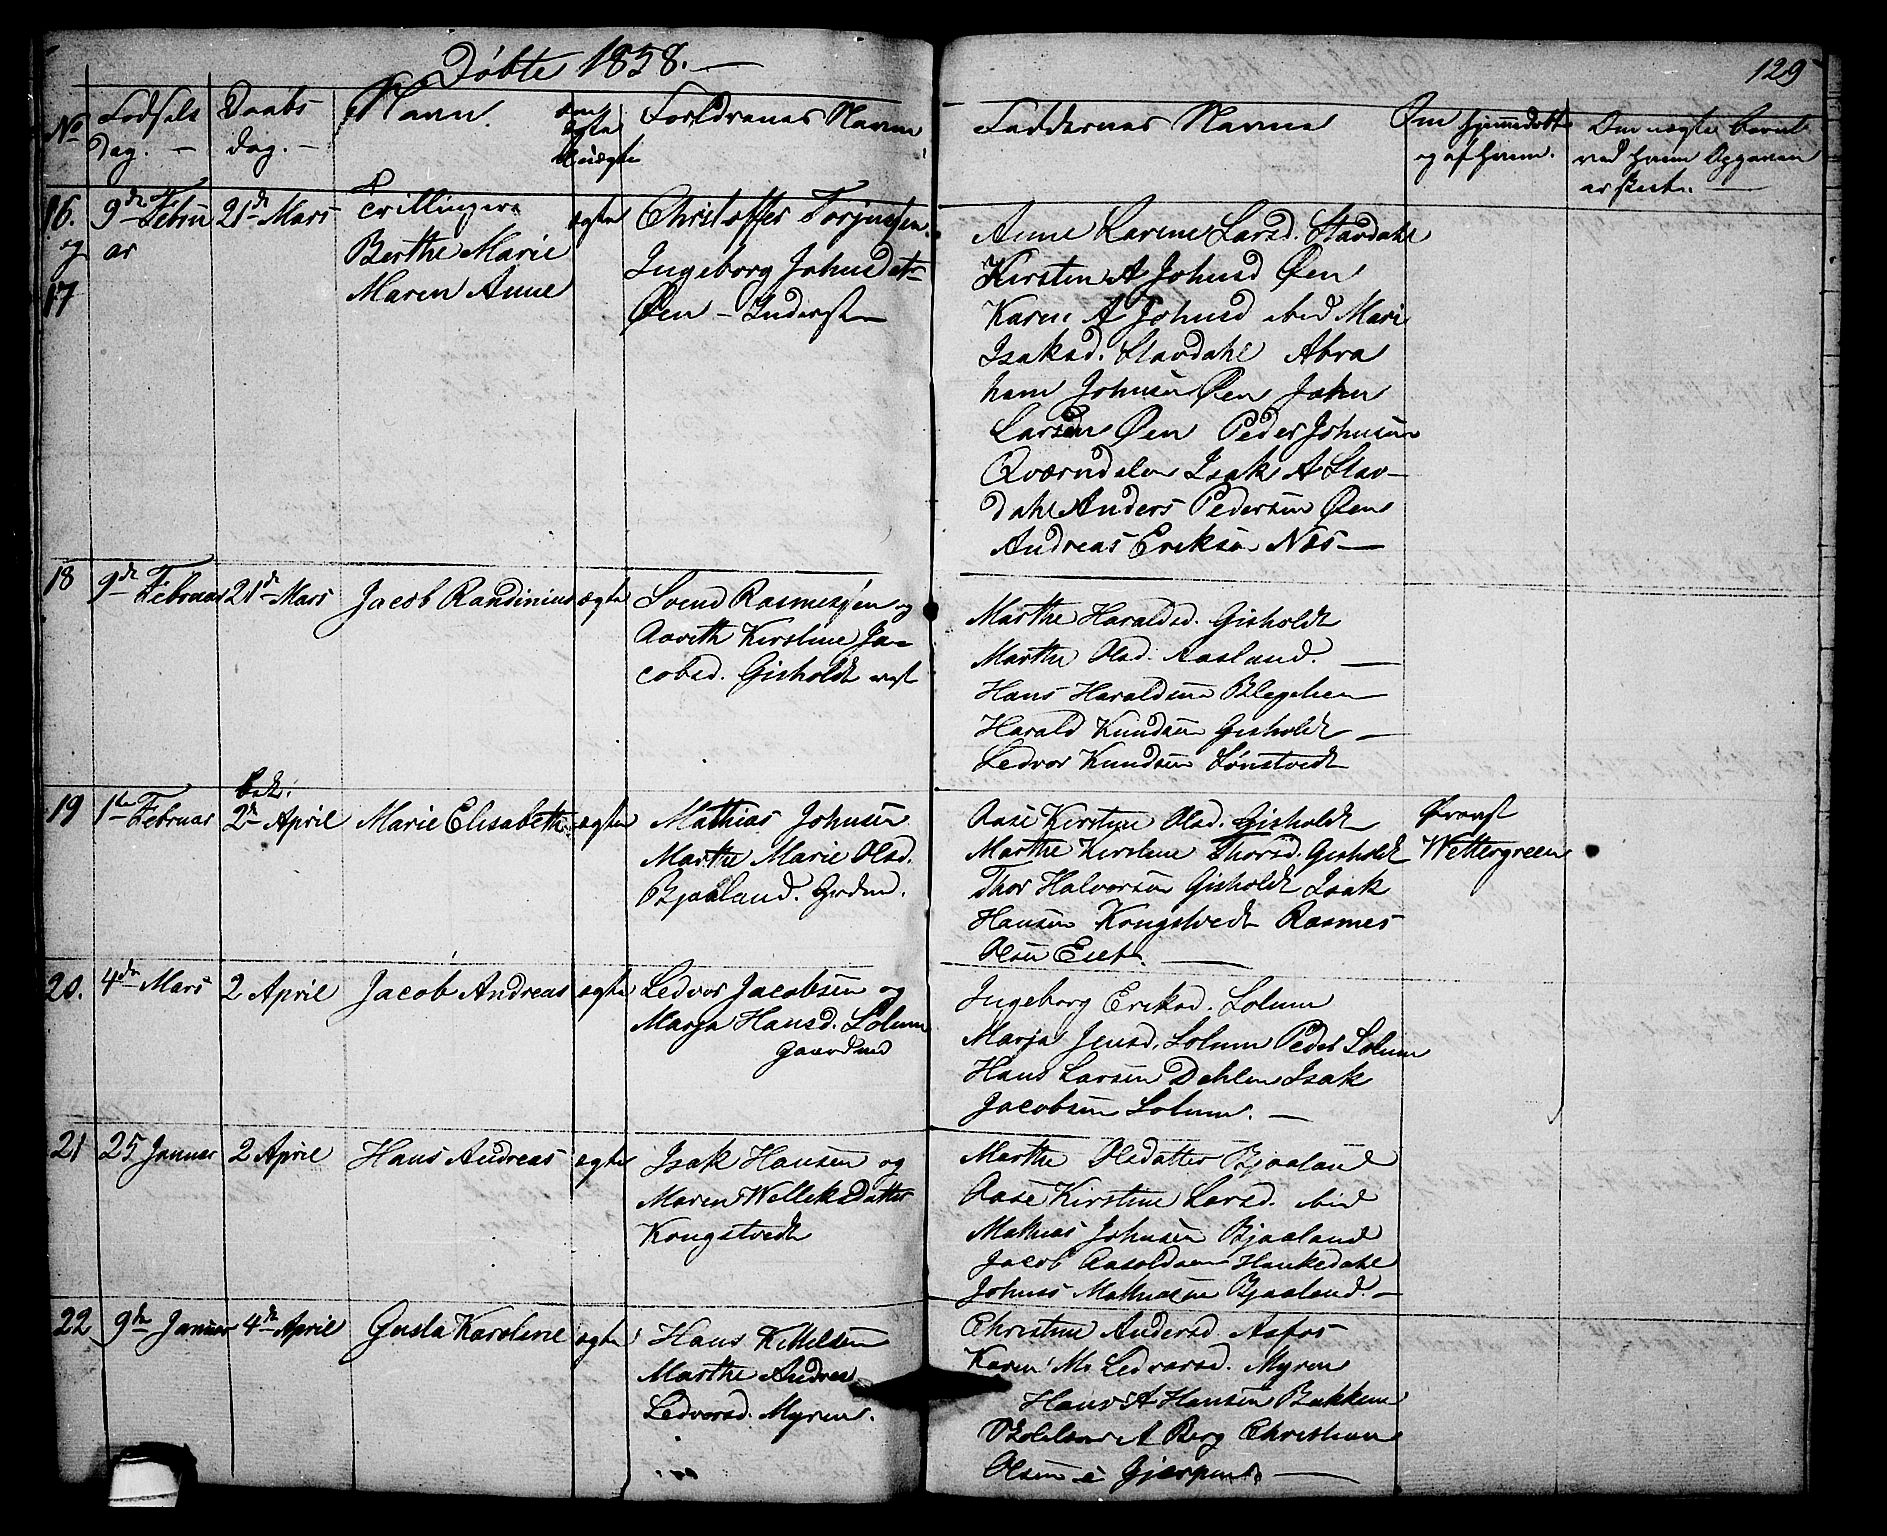 Døbte 1858.
129
No
Fødsels
dag.
Daabs
dag.
Navn.
om
ægte
uægte
Forældrenes Navne
Faddernes Navne
Om hjemmedøbt
og af hvem.
16.
og
17
9de Febru
ar
21de Mars
Trillinger
Berthe Marie
Maren Anne
ægte
Christoffer Torjussen
Ingeborg Johnsdatr
Øen - Inderst
Anne Karine Larsd. Stavdahl
Kirsten A Johnsd Øen
Karen A Johnsd ibid Mari
Isaksd. Stavdahl Abra
ham Johnsen Øen John
Larsen Øen Peder Johnsen
Qværndalen Isak A Stav-
dahl Anders Pedersen Øen
Andreas Eriksen Næs
18
9de Februar
21de Mars
Jacob Randinius
ægte
Svend Rasmussen og
Aavith Kirstine Ja-
cobsd. Gisholdt
Marthe Haraldsd. Gisholdt
Marthe Olsd. Aasland.
Hans Haraldsen
Harald Knudsen Gisholdt
Ledvor Knudsen Lønstvedt
19
1te Februar
bek.
2de April
Marie Elisabeth
ægte
Mathias Johnsen
Marthe Marie Olsd.
Bjaaland. Grdm.
Aase Kirstine Olsd. Gisholdt
Marthe Kirstine Thorsd. Gisholdt
Thor Halvorsen Gisholdt Isak
Hansen Kongstvedt Rasmus
Olsen
Provst
Wettergreen
20.
4de Mars
2 April
Jacob Andreas
ægte
Ledvor Jacobsen og
Marja Hansd. Solum
Gaardmd
Ingeborg Eriksd. Solum
Marja Jensd. Solum Peder Solum
Hans Larsen Dahlen Isak
Jacobsen Solum.
21
25 Januar
2 April
Hans Andreas
ægte
Isak Hansen og
Maren Welleksdatter
Kongstvedt
Marthe Olsdatter Bjaaland
Aase Kirstine Larsd. ibid
Mathias Johnsen Bjaaland
Jacob Aasoldsen Haukedahl
Johnis Mathiasen Bjaaland.
22
9de Januar
4de April
Gusta Karoline
ægte
Hans Kittelsen
Marthe Andrea
Ledvorsd. Myren.
Christine Andersd. Aafos
Karen M. Ledvorsd. Myren
Hans A Hansen Bakken
A Berg Christian
Olsen i Gjerpen